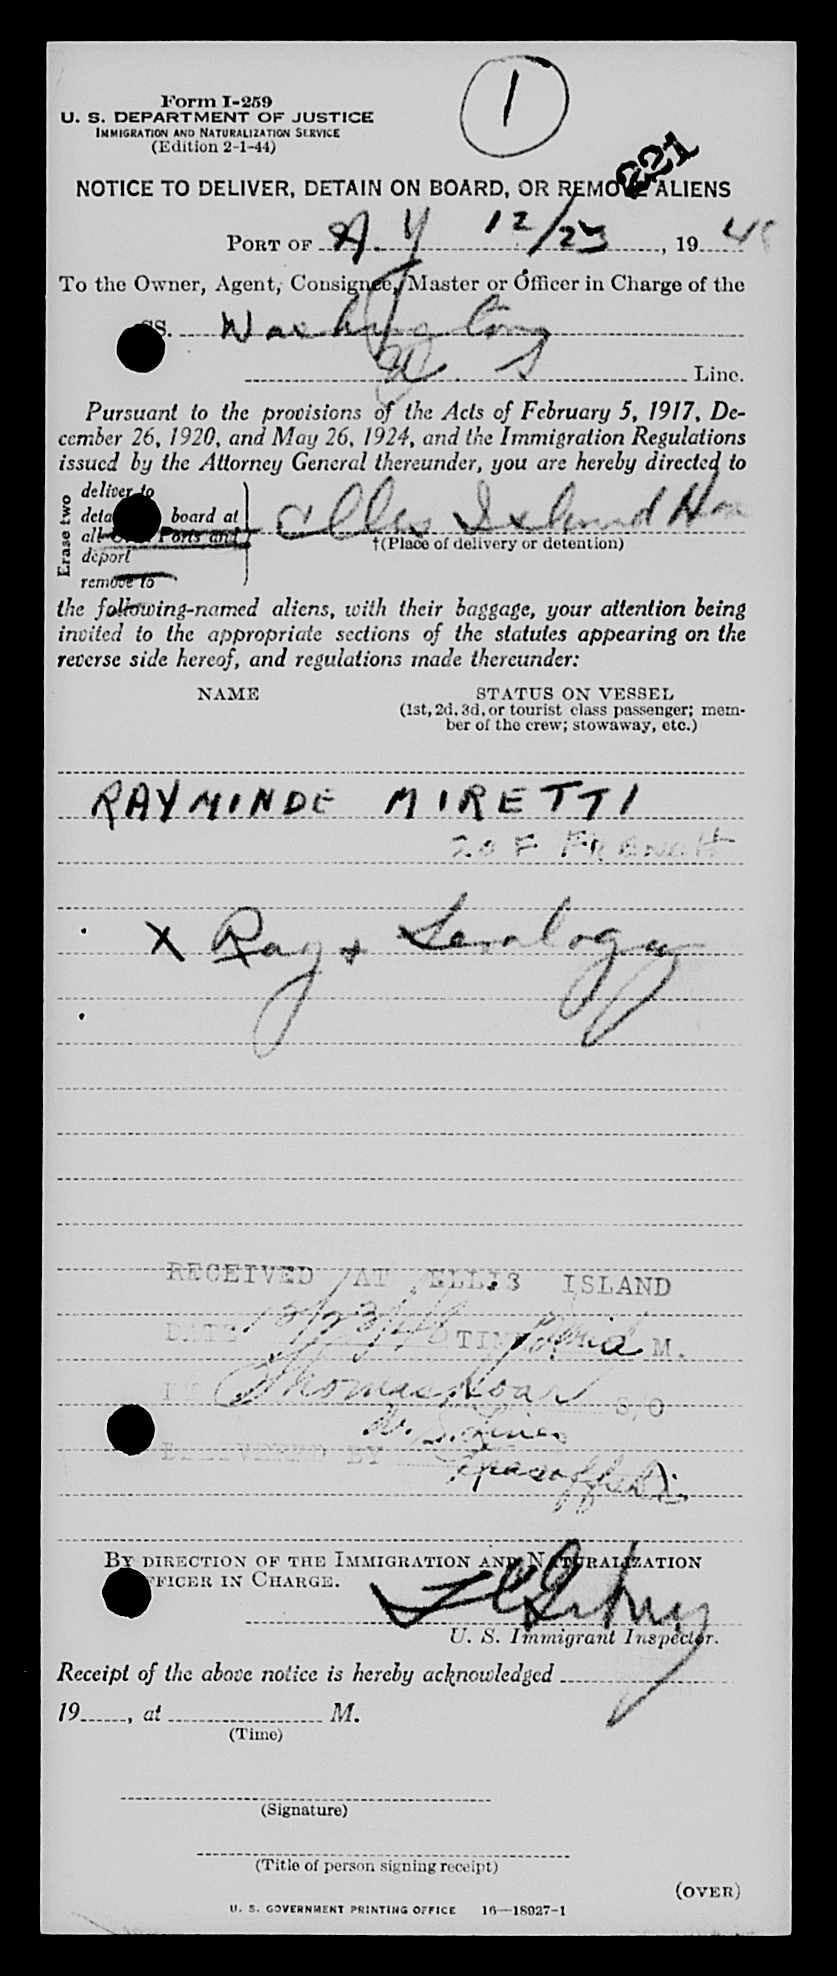 Form I-259
U. S. DEPARTMENT OF JUSTICE
IMMIGRATION AND NATURALIZATION SERVICE
(Edition 2-1-44)
1
221
NOTICE TO DELIVER, DETAIN ON BOARD, OR REMOVE ALIENS
PORT OF N. Y 12/23, 19 48
To the Owner, Agent, Consignee, Master or Officer in Charge of the
SS. Washington
U. S Line.
Pursuant to the provisions of the Acts of February 5, 1917, De-
cember 26, 1920, and May 26, 1924, and the Immigration Regulations
issued by the Attorney General thereunder, you are hereby directed to
Erase two
deliver to
board at
all Ports and
deport
remove to
Ellis Island
†(Place of delivery or detention)
the following-named aliens, with their baggage, your attention being
invited to the appropriate sections of the statutes appearing on the
reverse side hereof, and regulations made thereunder:
NAME STATUS ON VESSEL
(1st, 2d, 3d, or tourist class passenger; mem-
ber of the crew; stowaway, etc.)
RAYMINDE MIRETTI
20 F FRENCH
X Ray + Seralogy
RECEIVED AT ELLIS ISLAND
DATE 12/23/48 TIME M.
Thomas S/O
U. S. Lines
DELIVERED BY
BY DIRECTION OF THE IMMIGRATION AND NATURALIZATION
OFFICER IN CHARGE.
U. S. Immigrant Inspector.
Receipt of the above notice is hereby acknowledged
19, at M.
(Time)
(Signature)
(Title of person signing receipt)
(OVER)
U. S. GOVERNMENT PRINTING OFFICE 16—18927-1